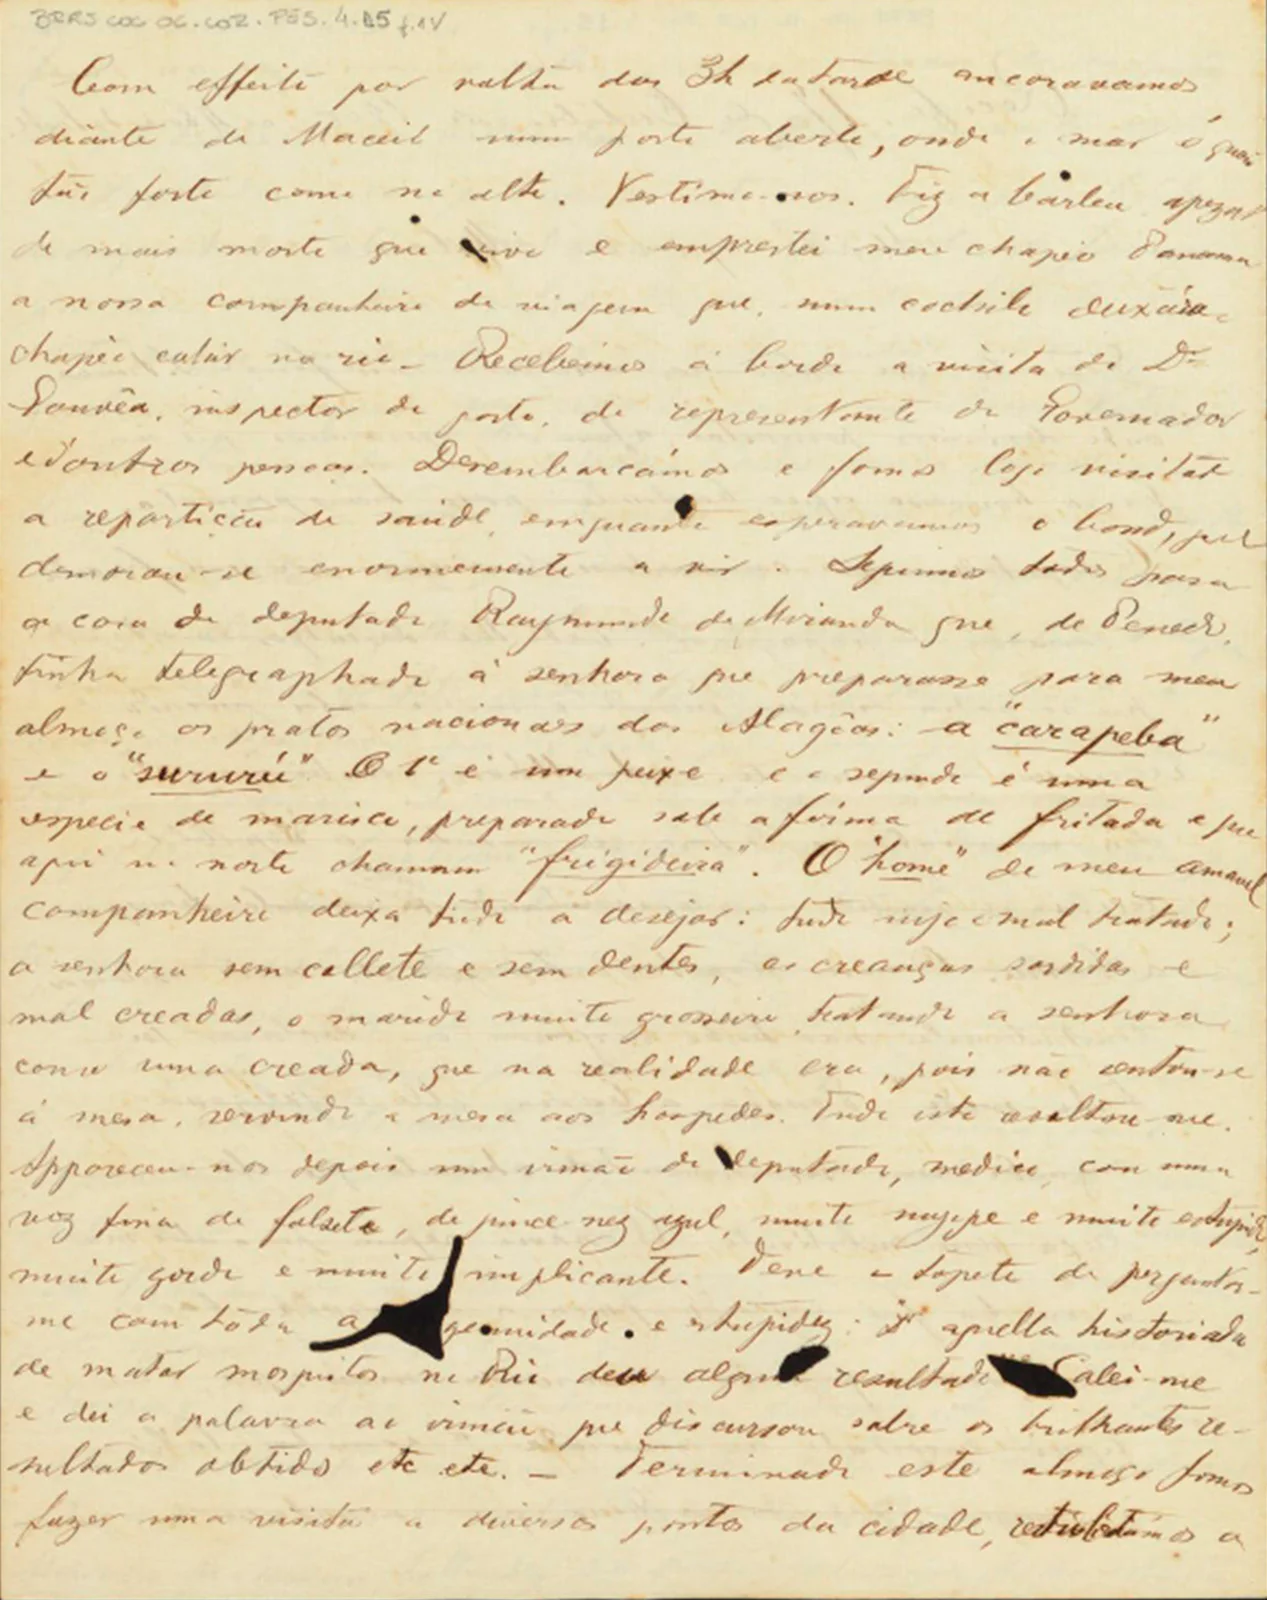 BR RJ COC OC.COR.PES.4.15 f.1v
Com effeito por volta das 3h da tarde ancoravamos
diante de Maceió num porto aberto, onde o mar é quasi
tão forte como no alto. Vestimo-nos. Fiz a barba apezar
de mais morto que vivo e emprestei meu chapéo Panama
a nosso companheiro de viagem que, num cochilo deixára o
chapéo cahir no rio – Recebemos á bordo a visita do Dr
Gouvêa, inspector do porto, do representante do Governador
e d'outros pessoas. Desembarcámos e fomos logo visitar
a repartição de saúde, emquanto esperavamos o bond, que
demorou-se enormemente a vir. Seguimos todos para
a casa do deputado Raymundo de Miranda que, de Penedo,
tinha telegraphado á senhora que preparasse para meu
almoço os pratos nacionaes das Alagôas: a "carapeba"
e o "sururú" O 1º é um peixe e o segundo é uma
especie de marisco, preparado sob a fórma de fritada e que
aqui no norte chamam "frigideira". O "home" de meu amavel
companheiro deixa tudo a desejar: tudo sujo e mal tratado;
a senhora sem collete e sem dentes, as creanças sordidas e
mal creadas, o marido muito grosseiro tratando a senhora
como uma creada, que na realidade era, pois não sentou-se
á mesa, servindo a mesa aos hospedes. Tudo isto revoltou-me.
Appareceu-nos depois um irmão do deputado, medico, com uma
voz fina de falsete, de pince-nez azul, muito e muito estupido,
muito gordo e muito implicante. Teve o topete de perguntar-
me com tôda a ingenuidade e estupidez: Si aquella historiada
de matar mosquitos no Rio deu algum resultado Calei-me
e dei a palavra ao irmão que discursou sobre os brilhantes re-
sultados obtidos etc etc. – Terminado este almoço fomos
fazer uma visita a diversos pontos da cidade, a